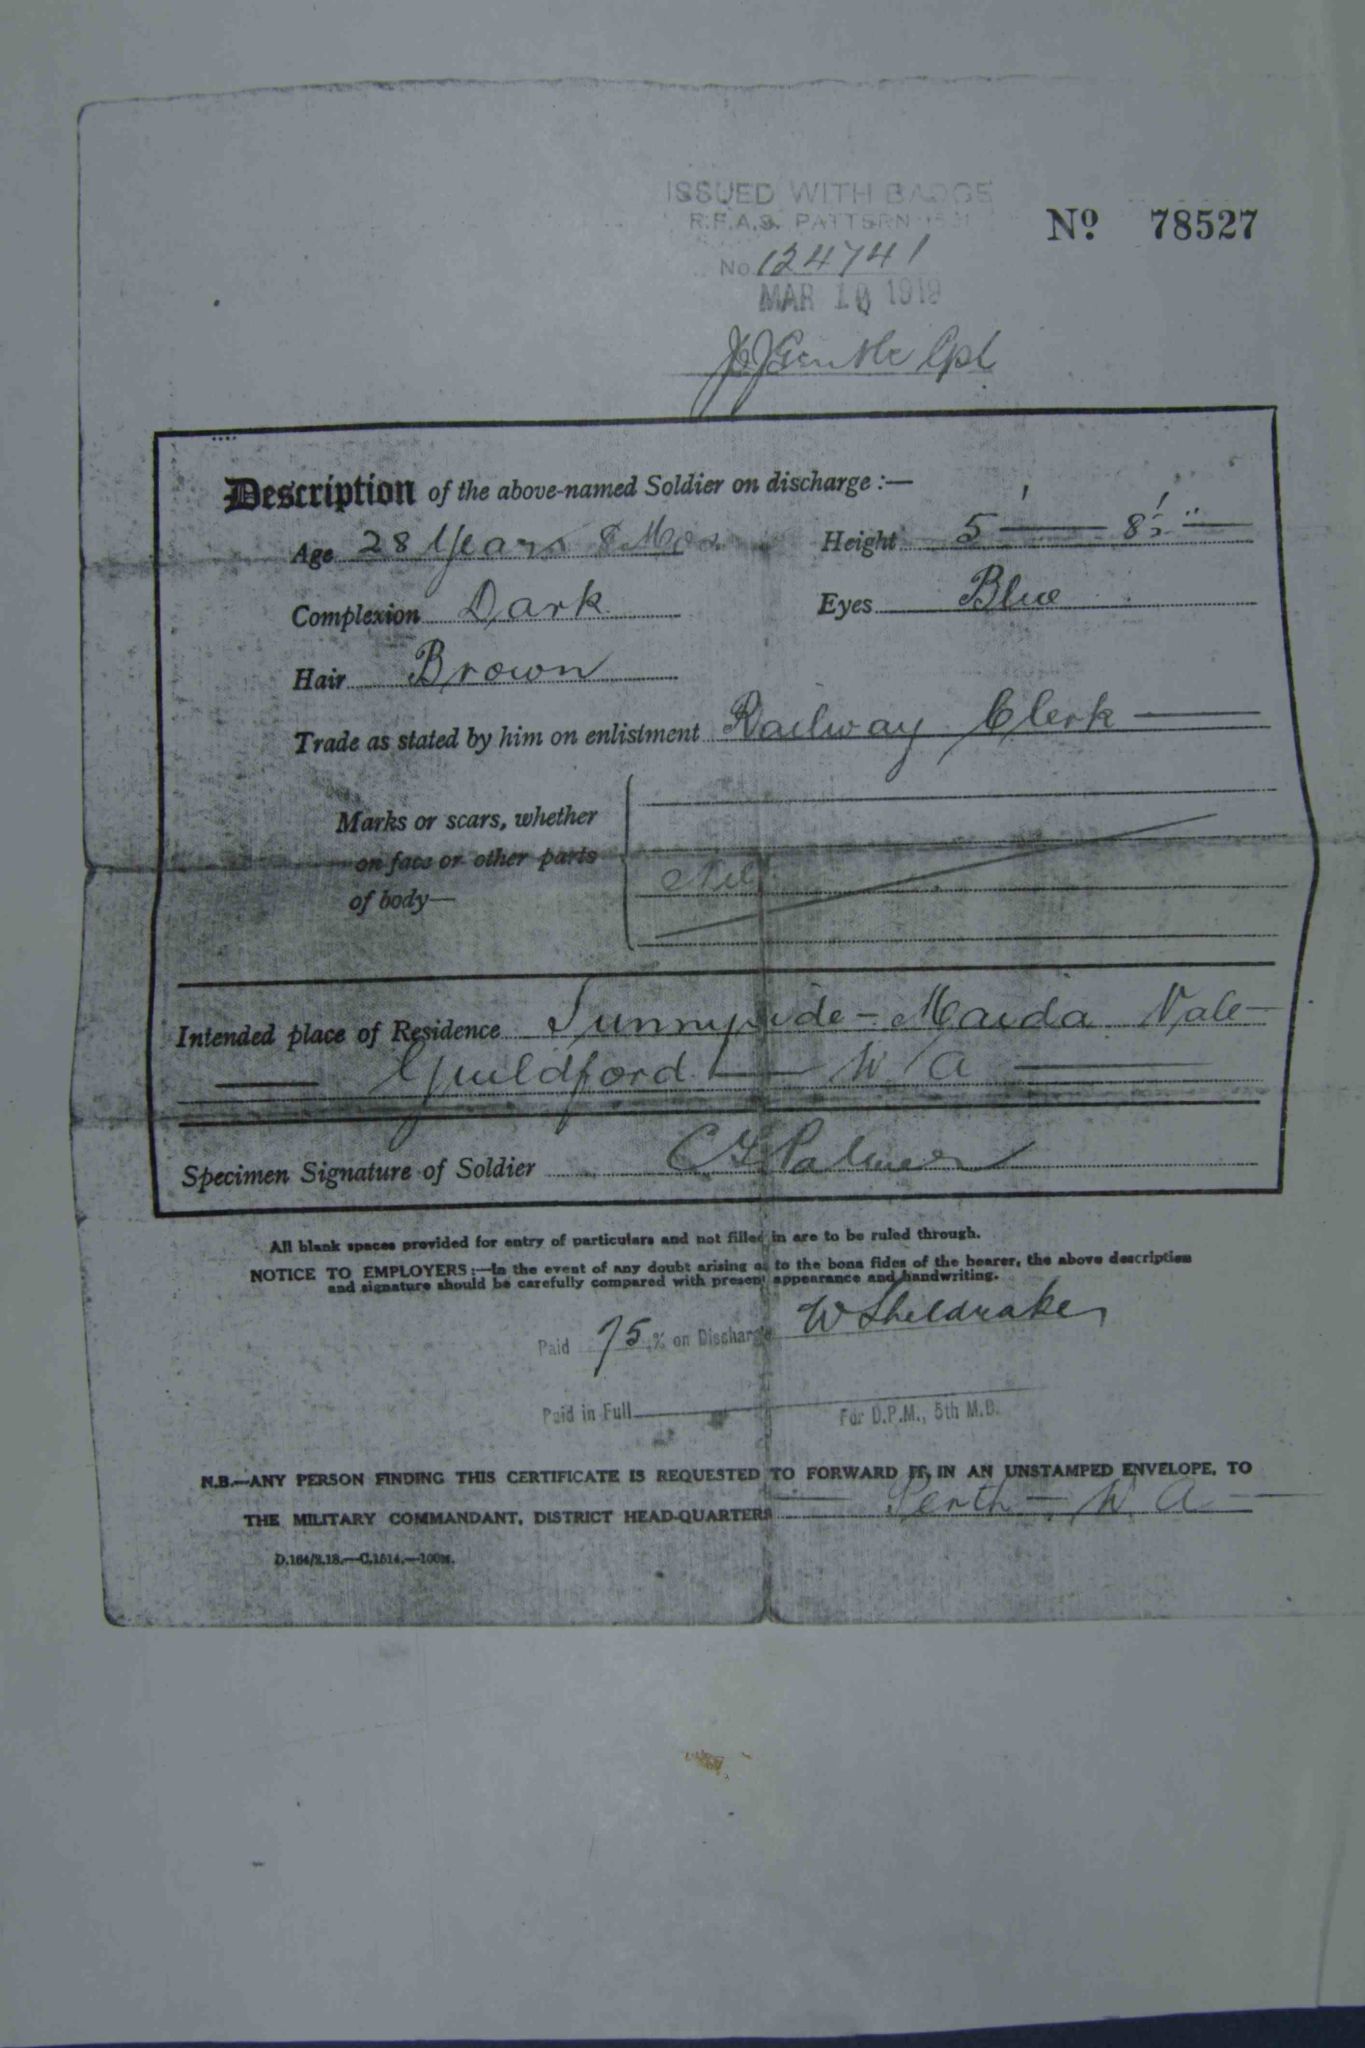 ISSUED WITH BADGE
R.F.A.S. PATTERN
No 124741
Nº 78527
MAR 10 1919
Cpl
Description of the above-named Soldier on discharge :—
Age 28 Years 8 Mos Height 5' — 8½" —
Complexion Dark Eyes Blue
Hair Brown
Trade as stated by him on enlistment Railway Clerk —
Marks or scars, whether
on face or other parts
of body—
Nil
Intended place of Residence Sunnyside - Maida Vale -
— Guildford — W A —
Specimen Signature of Soldier Palmer
All blank spaces provided for entry of particulars and not filled in are to be ruled through.
NOTICE TO EMPLOYERS :—In the event of any doubt arising as to the bona fides of the bearer, the above description
and signature should be carefully compared with present appearance and handwriting.
Paid 75 % on Discharge W Sheldrake
Paid in Full
For D.P.M., 5th M.D.
N.B.—ANY PERSON FINDING THIS CERTIFICATE IS REQUESTED TO FORWARD IT, IN AN UNSTAMPED ENVELOPE, TO
THE MILITARY COMMANDANT, DISTRICT HEAD-QUARTERS — Perth — W. A —
D.164/2.18.—C.1514.—100M.